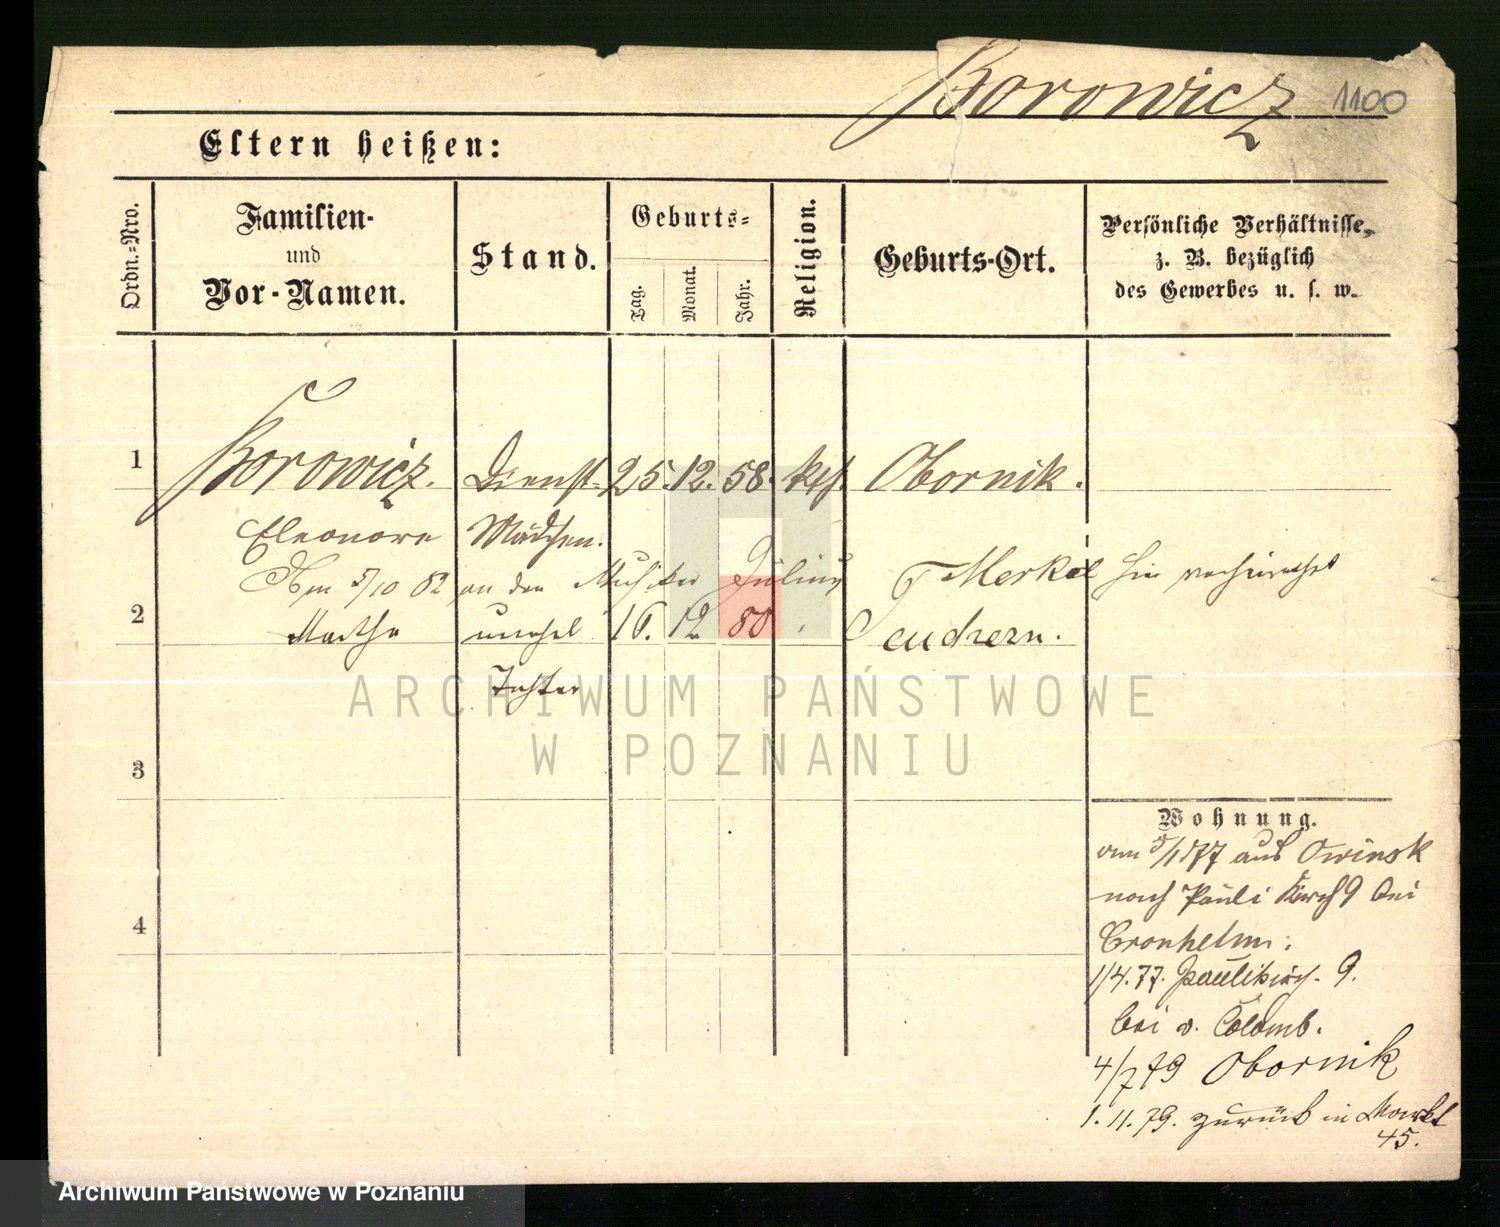 Borowicz 1100
Eltern heißen:
Ordn.-Nro.
Familien-
und
Vor-Namen.
Stand.
Geburts-
Tag.
Monat.
Jahr.
Religion.
Geburts-Ort.
Persönliche Verhältnisse,
z. B. bezüglich
des Gewerbes u. s. w.
1 Borowicz. Dienst- 25. 12. 58. kth. Obornik.
Eleonore Mädchen.
Am 5/10 82 an den Musiker Julius Merkel hier verheirathet
2 Martha unehel 16. 12 80
Tochter
3
4
Wohnung.
aus Owinsk
nach Pauli Kirch 9 bei
Cronhelm.
1/4.77. Paulikirch. 9.
bei v. Colomb.
4/7 79 Obornik
1.11.79. zurück in Markt
45.
ARCHIWUM PAŃSTWOWE
W POZNANIU
Archiwum Państwowe w Poznaniu